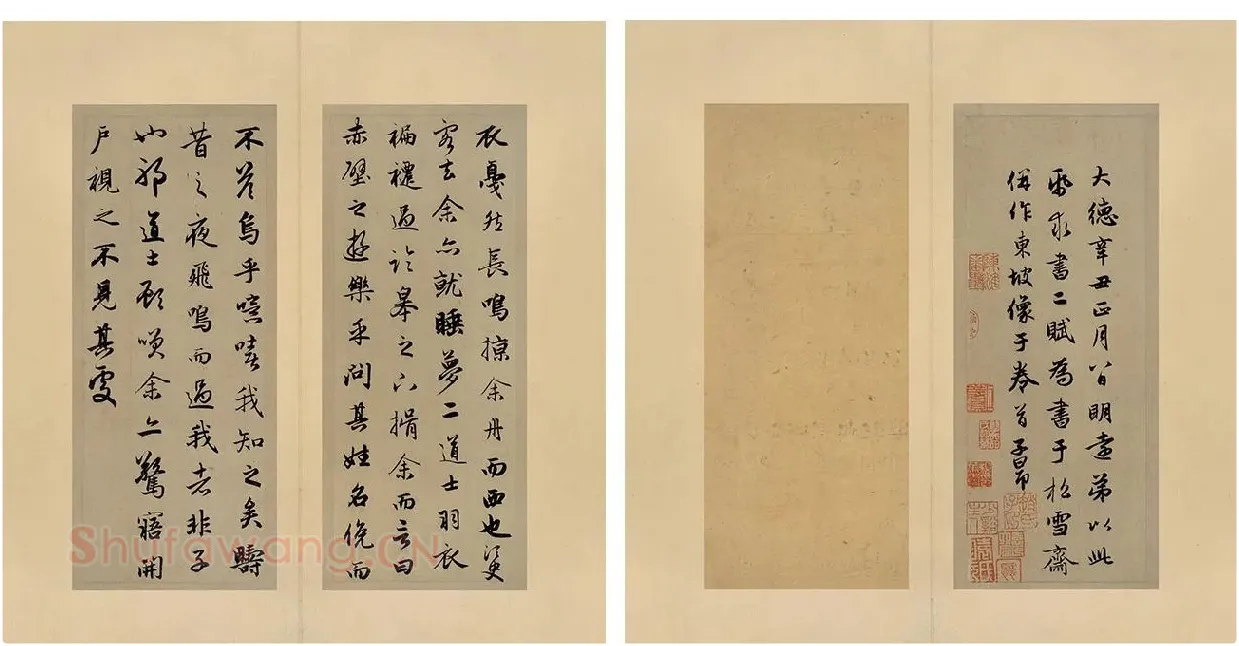 衣戛然長鳴掠余舟而西也須臾
客去余亦就睡夢二道士羽衣
褊褼過臨皋之下揖余而言曰
赤壁之遊樂乎問其姓名俛而
不荅烏乎噫嘻我知之矣疇
昔之夜飛鳴而過我者非子
也邪道士顧笑余亦驚寤開
戶視之不見其處
大德辛丑正月八日明遠弟以此
紙求書二賦為書于松雪齋
併作東坡像于卷首子昂
Shufawang.CN